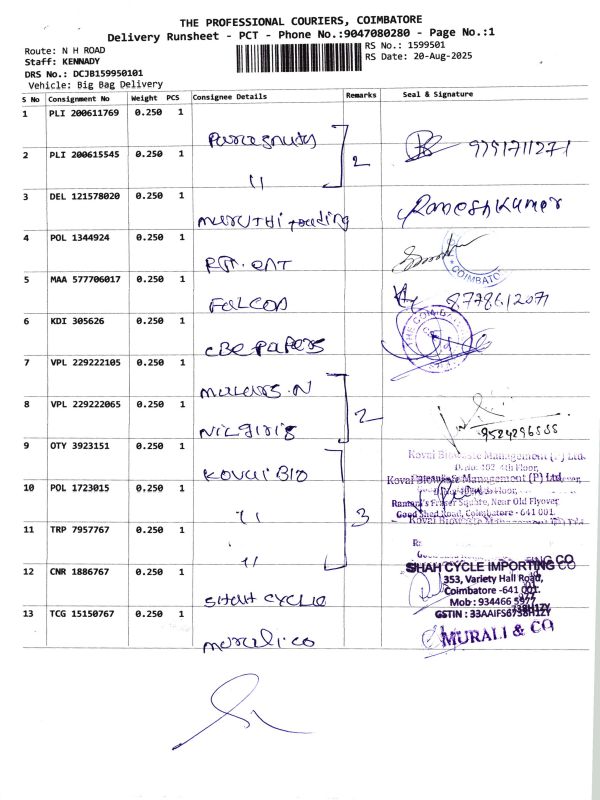 THE PROFESSIONAL COURIERS, COIMBATORE
Delivery Runsheet - PCT - Phone No.:9047080280 - Page No.:1
Route: N H ROAD
RS No.: 1599501
Staff: KENNADY
RS Date: 20-Aug-2025
DRS No.: DCJB159950101
Vehicle: Big Bag Delivery
S No Consignment No Weight PCS Consignee Details Remarks Seal & Signature
1 PLI 200611769 0.250 1
2 PLI 200615545 0.250 1 " 2 9791711271
3 DEL 121578020 0.250 1 MARUTHI Trading RameshKumar
4 POL 1344924 0.250 1 COIMBATO
5 MAA 577706017 0.250 1 FALCON
6 KDI 305626 0.250 1 CBE PAPERS
7 VPL 229222105 0.250 1
8 VPL 229222065 0.250 1 Nilgiris 2
9 OTY 3923151 0.250 1 KOVAI BIO
Kovai Biowaste Management (P) Ltd.
D.No: 102, 4th Floor,
10 POL 1723015 0.250 1 " 3
Kovai Biowaste Management (P) Ltd.
Ramani's Fraser Square, Near Old Flyover
Good Shed Road, Coimbatore - 641 001.
11 TRP 7957767 0.250 1 "
12 CNR 1886767 0.250 1 SHAH CYCLE
SHAH CYCLE IMPORTING CO
353, Variety Hall Road,
Coimbatore -641 001.
Mob : 934466
GSTIN : 33AAIFS6738H1ZY
13 TCG 15150767 0.250 1 murali co
MURALI & CO